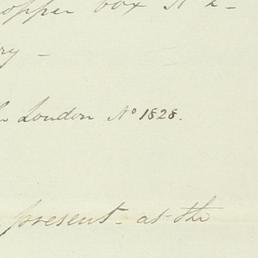 opper box N 2-
ry -
London No 1828.
present - at the